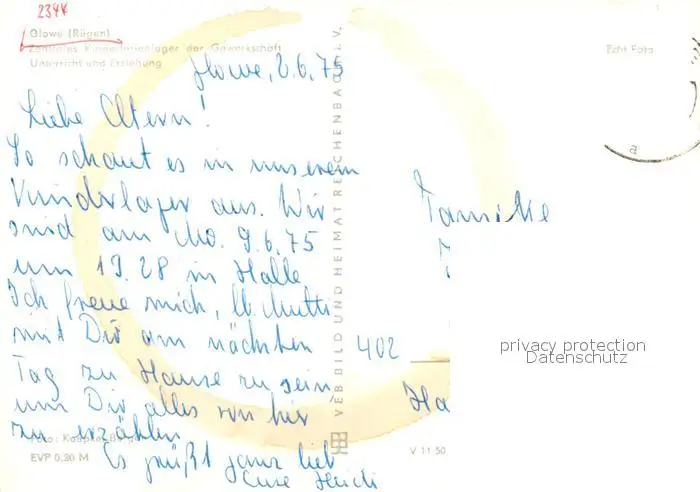 2344
Glowe (Rügen)
Zentrales Kinderferienlager der Gewerkschaft
Unterricht und Erziehung
Echt Foto
Glowe, 2.6.75
Liebe Eltern!
So schaut es in unserem
Kinderlager aus. Wir
sind am Mo. 9.6.75
um 19.28 in Halle.
Ich freue mich, lb. Mutti
mit Dir am nächsten
Tag zu Hause zu sein
um Dir alles von hier
zu erzählen
Es grüßt ganz lieb
Eure Heidi
Familie
402
Ha
VEB BILD UND HEIMAT REICHENBACH I. V.
Foto:
EVP 0,20 M
V 11 50
a
privacy protection
Datenschutz